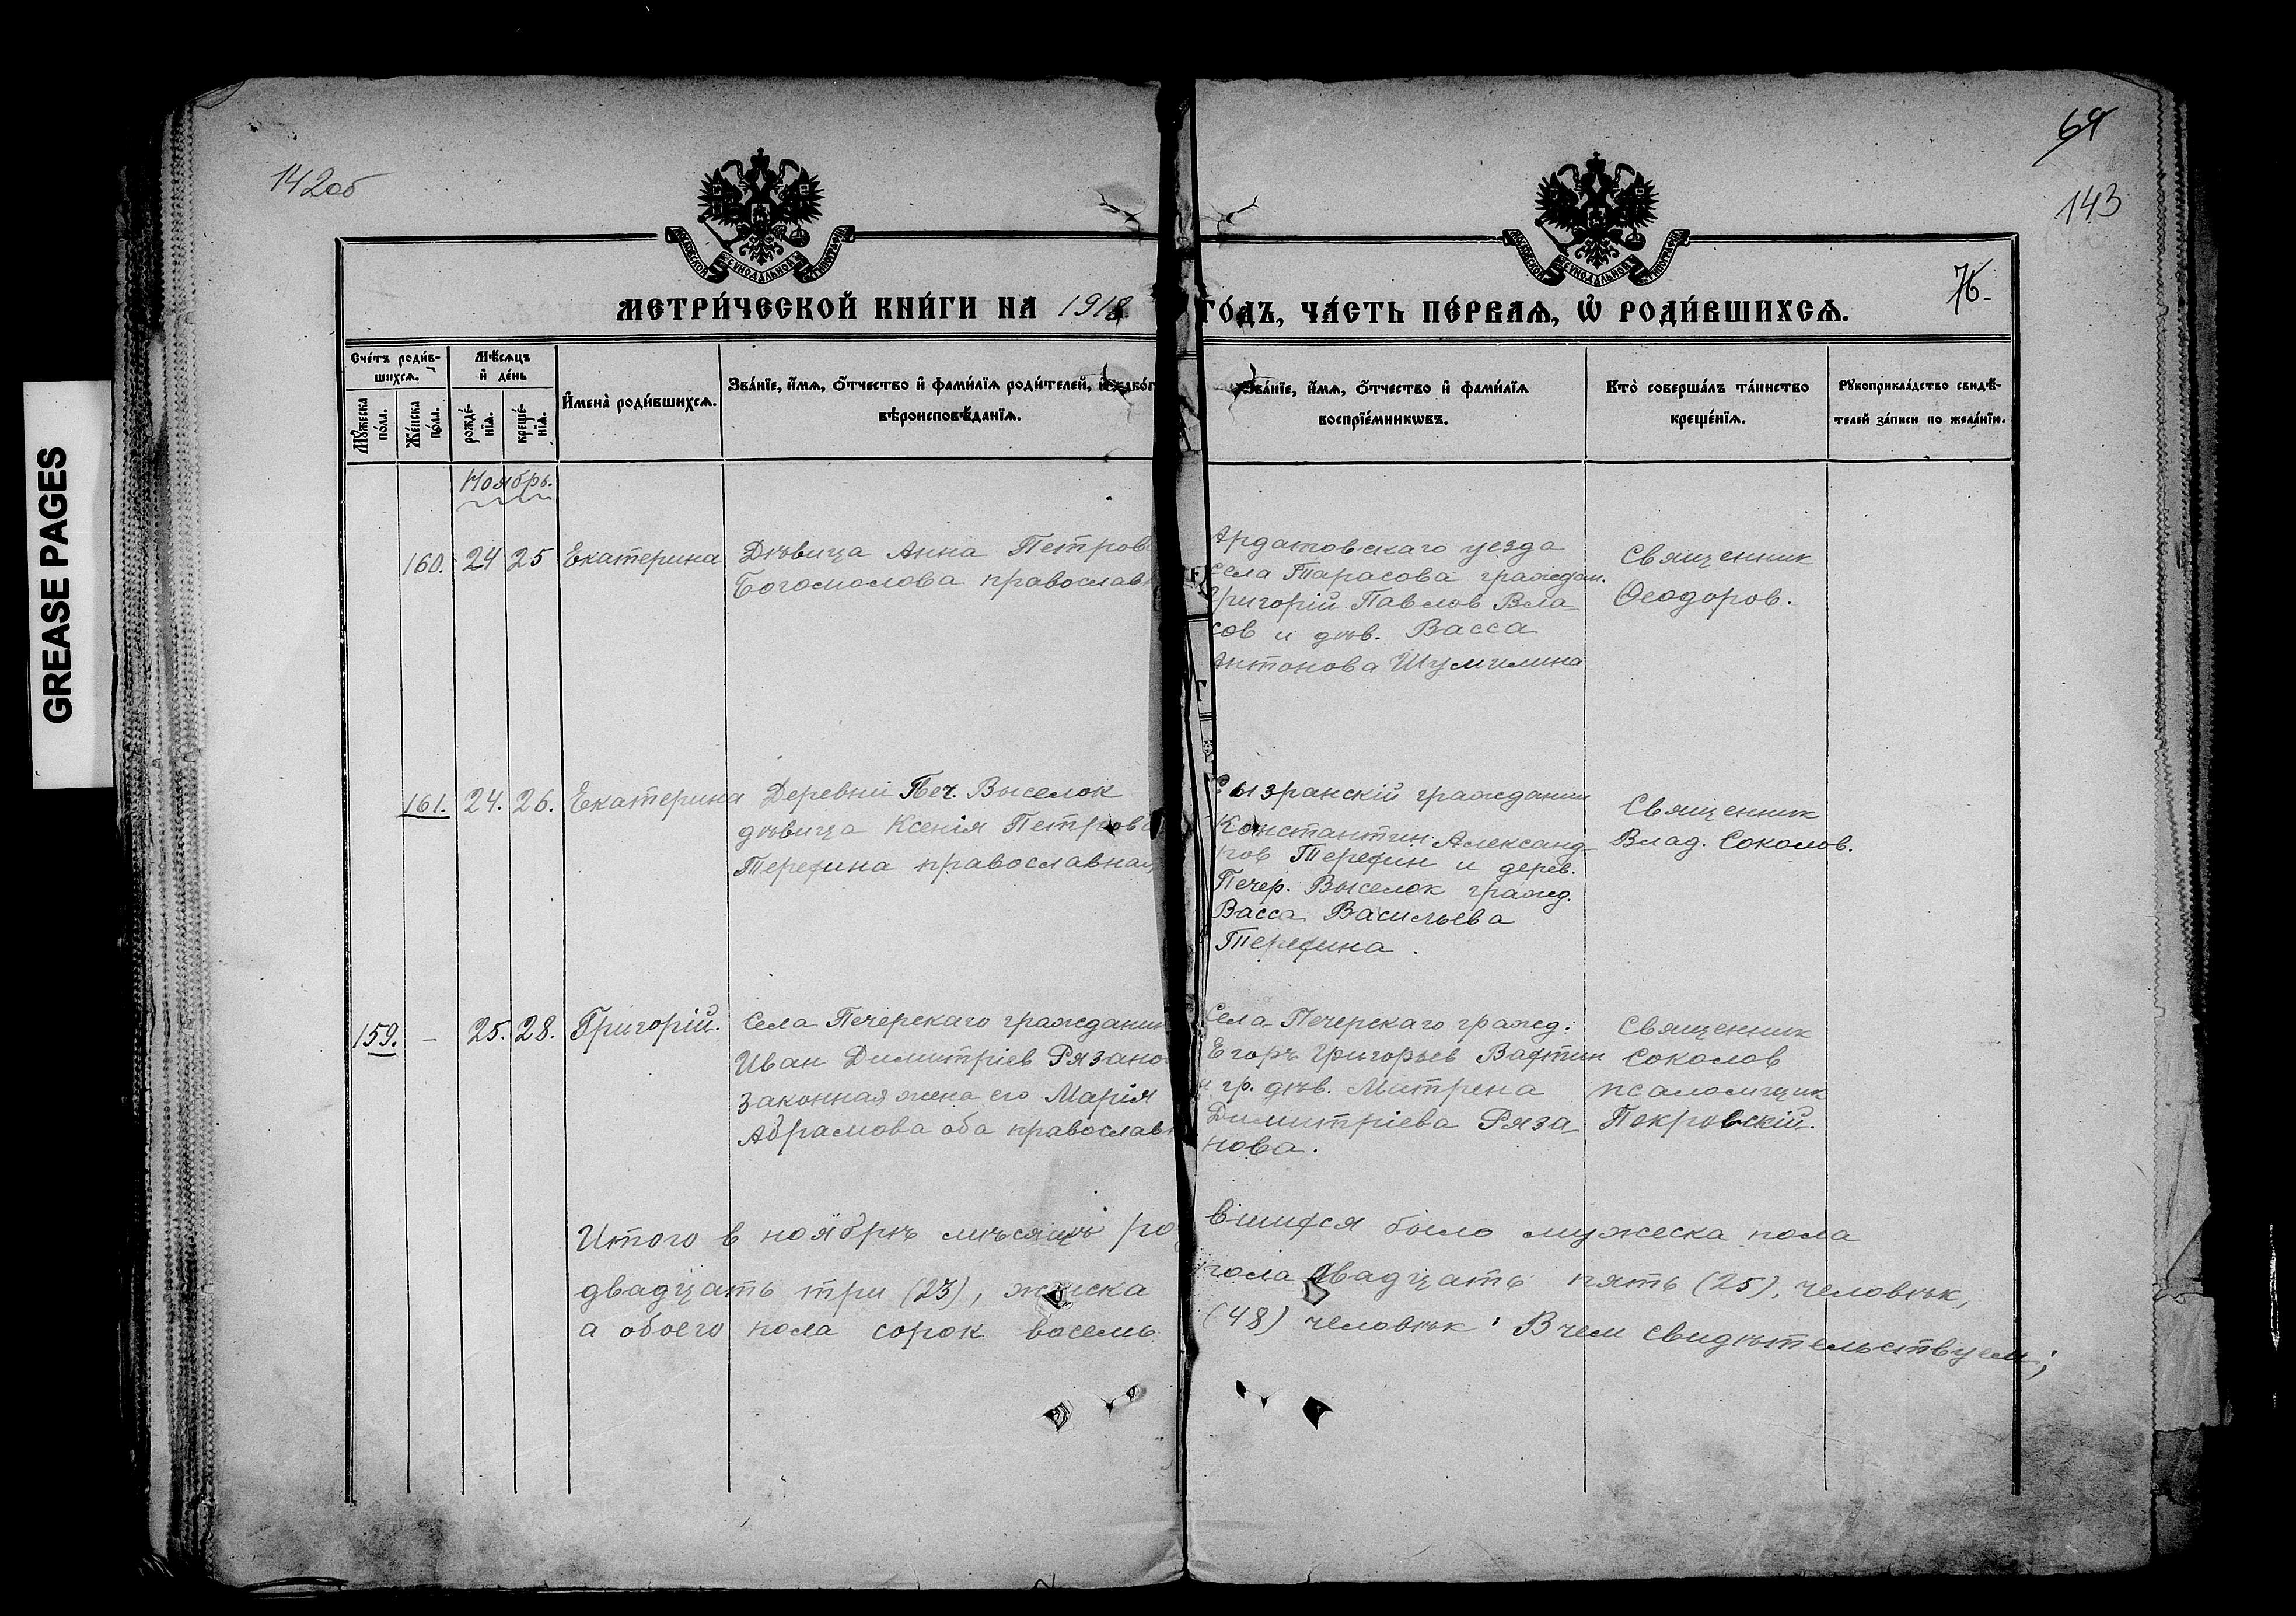 GREASE PAGES
142об
69
143
76.
МОСКОВСКОЙ СѴНОДАЛЬНОЙ ТИПОГРАФІИ
МОСКОВСКОЙ СѴНОДАЛЬНОЙ ТИПОГРАФІИ
МЕТРИ́ЧЕСКОЙ КНИ́ГИ НА 1918. ГО́ДЪ, ЧА́СТЬ ПЕ́РВАѦ, Ѡ҆ РОДИ́ВШИХСѦ.
Сче́тъ роди́в-
шихсѧ.
Мꙋ́жеска
по́ла.
Же́нска
по́ла.
Мѣ́сѧцъ
и҆ де́нь
рожде́-
нїѧ.
креще́-
нїѧ.
И҆мена̀ роди́вшихсѧ.
Зва́нїе, и҆́мѧ, ѻ҆́тчество и҆ фами́лїѧ роди́телей, и҆ како́г
вѣроисповѣ́данїѧ.
Зва́нїе, и҆́мѧ, ѻ҆́тчество и҆ фами́лїѧ
воспрїе́мникѡвъ.
Кто̀ соверша́лъ та́инство
креще́нїѧ.
Рꙋкоприкла́дство свидѣ́-
телей за́писи по жела́нїю.
Ноябрь.
160. 24 25 Екатерина
Дѣвица Анна Петров
Богомолова православ
Ардатовскаго уезда
села Тарасова граждан.
Григорій Павлов Вла-
сов и дѣв. Васса
Антонова Шумилина
Священник
Ѳеодоров.
161. 24. 26. Екатерина
Деревни Печ. Выселок
дѣвица Ксенія Петрова
Терехина православная
Сызранскій гражданин
Константин Александ-
ров Терехин и дерев.
Печер. Выселок гражд.
Васса Васильева
Терехина.
Священник
Влад. Соколов.
159. – 25. 28. Григорій.
Села Печерскаго гражданин
Иван Димитріев Рязано
законная жена его Марія
Абрамова оба православн
Села Печерскаго гражд.
Егоръ Григорьев Вахтин
и гр. дѣв. Матрена
Димитріева Ряза-
нова.
Священник
Соколов
псаломщик
Покровскій.
Итого в ноябрѣ мѣсяцѣ ро вшихся было мужеска пола
двадцать три (23), женска пола двадцать пять (25), человѣк,
а обоего пола сорок восемь (48) человѣк. В чем свидѣтельствуем;